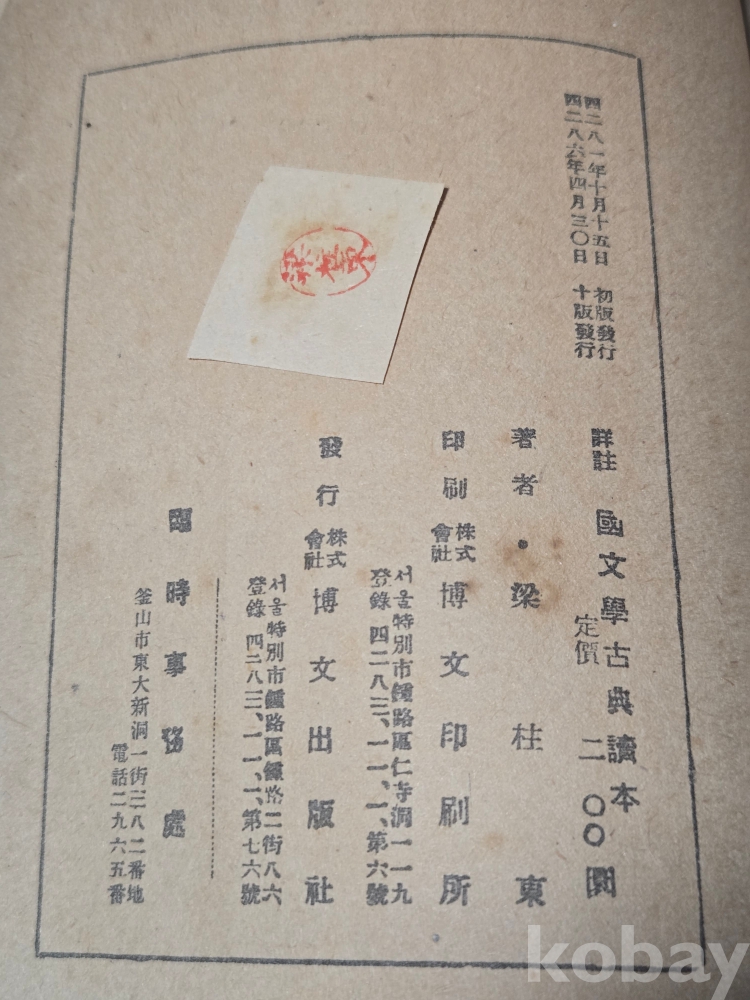 四二八一年十月十五日 初版發行
四二八六年四月三〇日 十版發行
詳註 國文學古典讀本
定價 二〇〇圜
著者・梁柱東
印刷 株式會社 博文印刷所
서울特別市鍾路區仁寺洞一一九
登錄 四二八三、一一、一、第六號
發行 株式會社 博文出版社
서울特別市鍾路區鍾路二街八六
登錄 四二八三、一一、一、第七六號
臨時事務處
釜山市東大新洞一街三八二番地
電話二九六五番
梁柱東
kobay